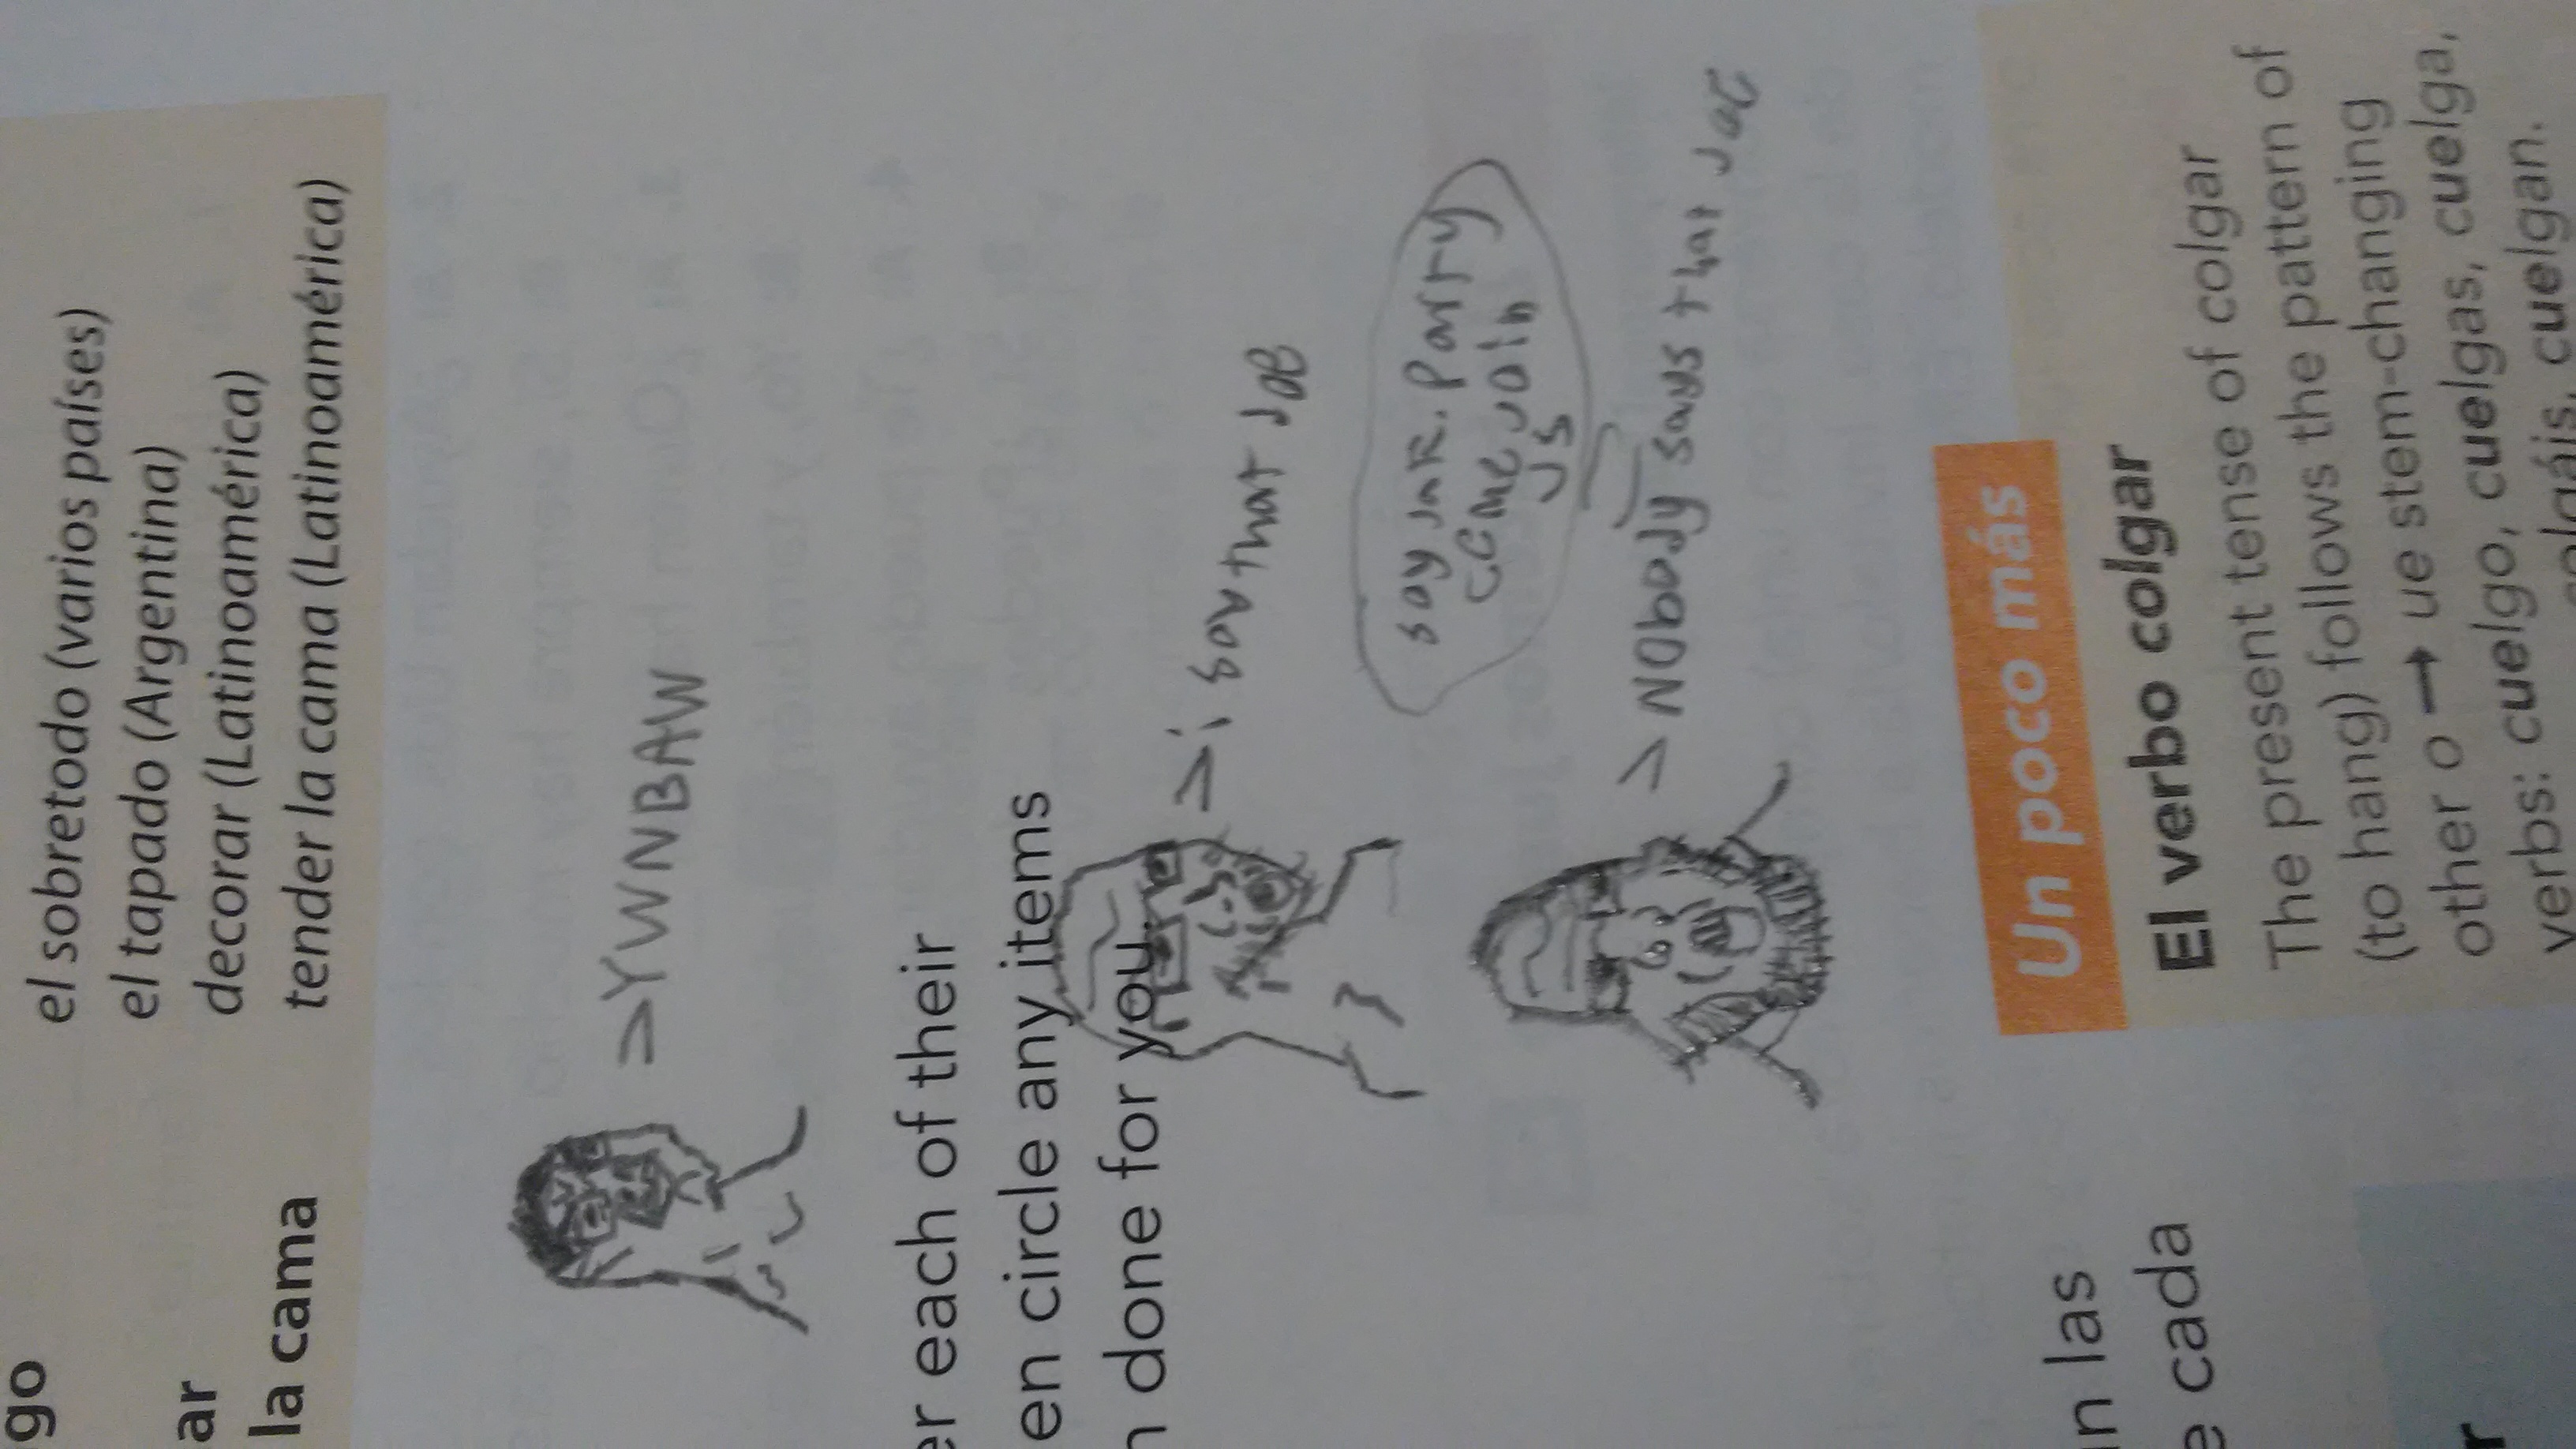 go
el sobretodo (varios países)
el tapado (Argentina)
ar
decorar (Latinoamérica)
la cama
tender la cama (Latinoamérica)
>YWNBAW
er each of their
en circle any items
n done for you.
>i say that JOE
say Jak. Party
come join
us
>NObody says that JOE
Un poco más
El verbo colgar
The present tense of colgar
(to hang) follows the pattern of
other o → ue stem-changing
verbs: cuelgo, cuelgas, cuelga,
colgáis, cuelgan.
n las
e cada
r